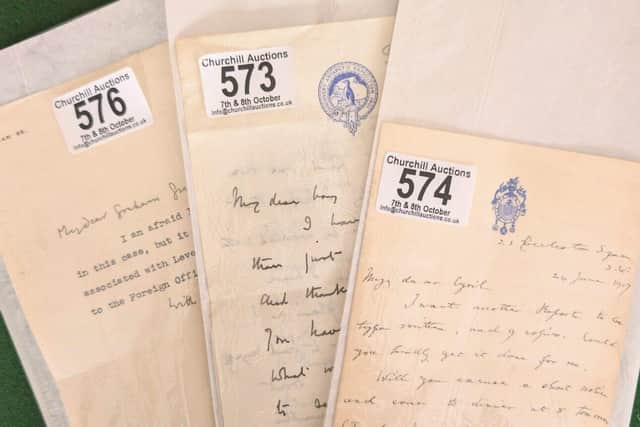 Churchill Auctions
576
7th & 8th October
info@churchillauctions.co.uk
My dear Graham
I am afraid I
in this case, but it
associated with Leve
to the Foreign Offic
With
Churchill Auctions
573
7th & 8th October
info@churchillauctions.co.uk
My dear
I have
than just
and thank
You have
What
to
Churchill Auctions
574
7th & 8th October
info@churchillauctions.co.uk
22 Eccleston Square
S.W.
24 June
My dear Cyril
I want another Report to be
type written, and 9 copies. Could
you kindly get it done for me.
Will you excuse a short notice
and come to dinner at 8